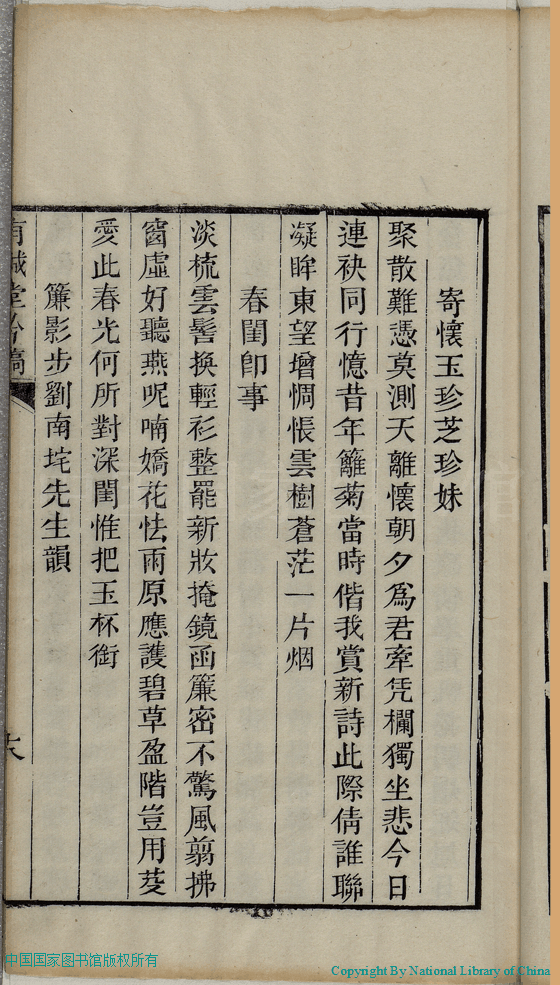 寄懷玉珍芝珍妹
聚散難憑莫測天離懷朝夕為君牽凭欄獨坐悲今日
連袂同行憶昔年籬菊當時偕我賞新詩此際倩誰聯
凝眸東望增惆悵雲樹蒼茫一片烟
春閨卽事
淡梳雲髻換輕衫整罷新妝掩鏡函簾密不驚風翦拂
窗虛好聽燕呢喃嬌花怯雨原應護碧草盈階豈用芟
愛此春光何所對深閨惟把玉杯銜
簾影步劉南垞先生韻
中国国家图书馆版权所有
Copyright By National Library of China